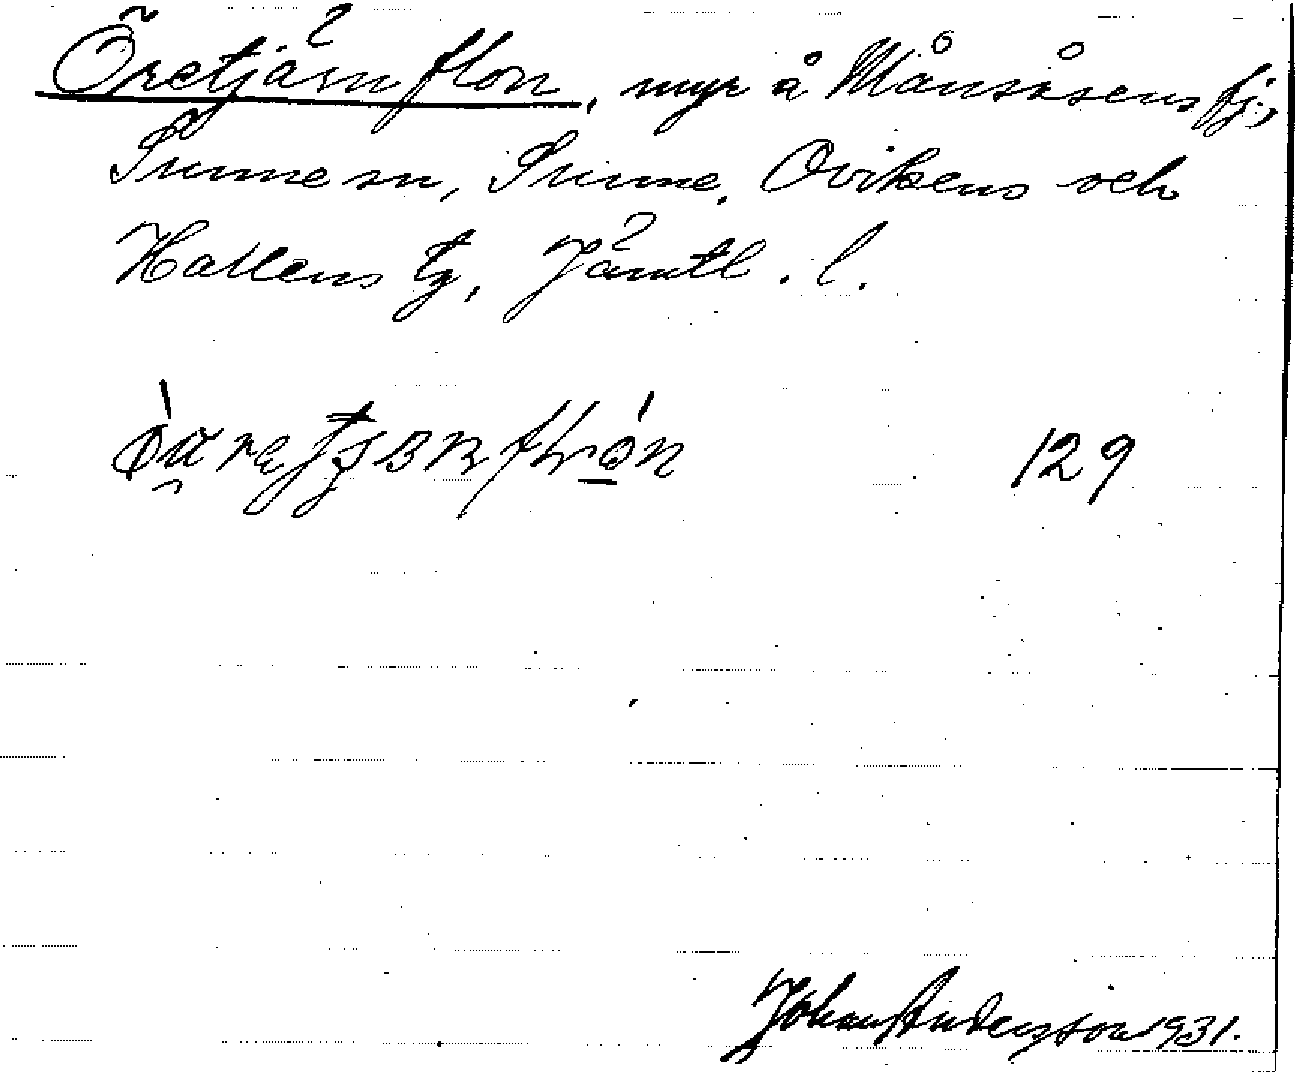 Öretjärnflon, myr å Månsåsens fj.,
Sunne sn, Sunne, Ovikens och
Hallens tg, Jämtl. l.
129
Johan Andersson 1931.